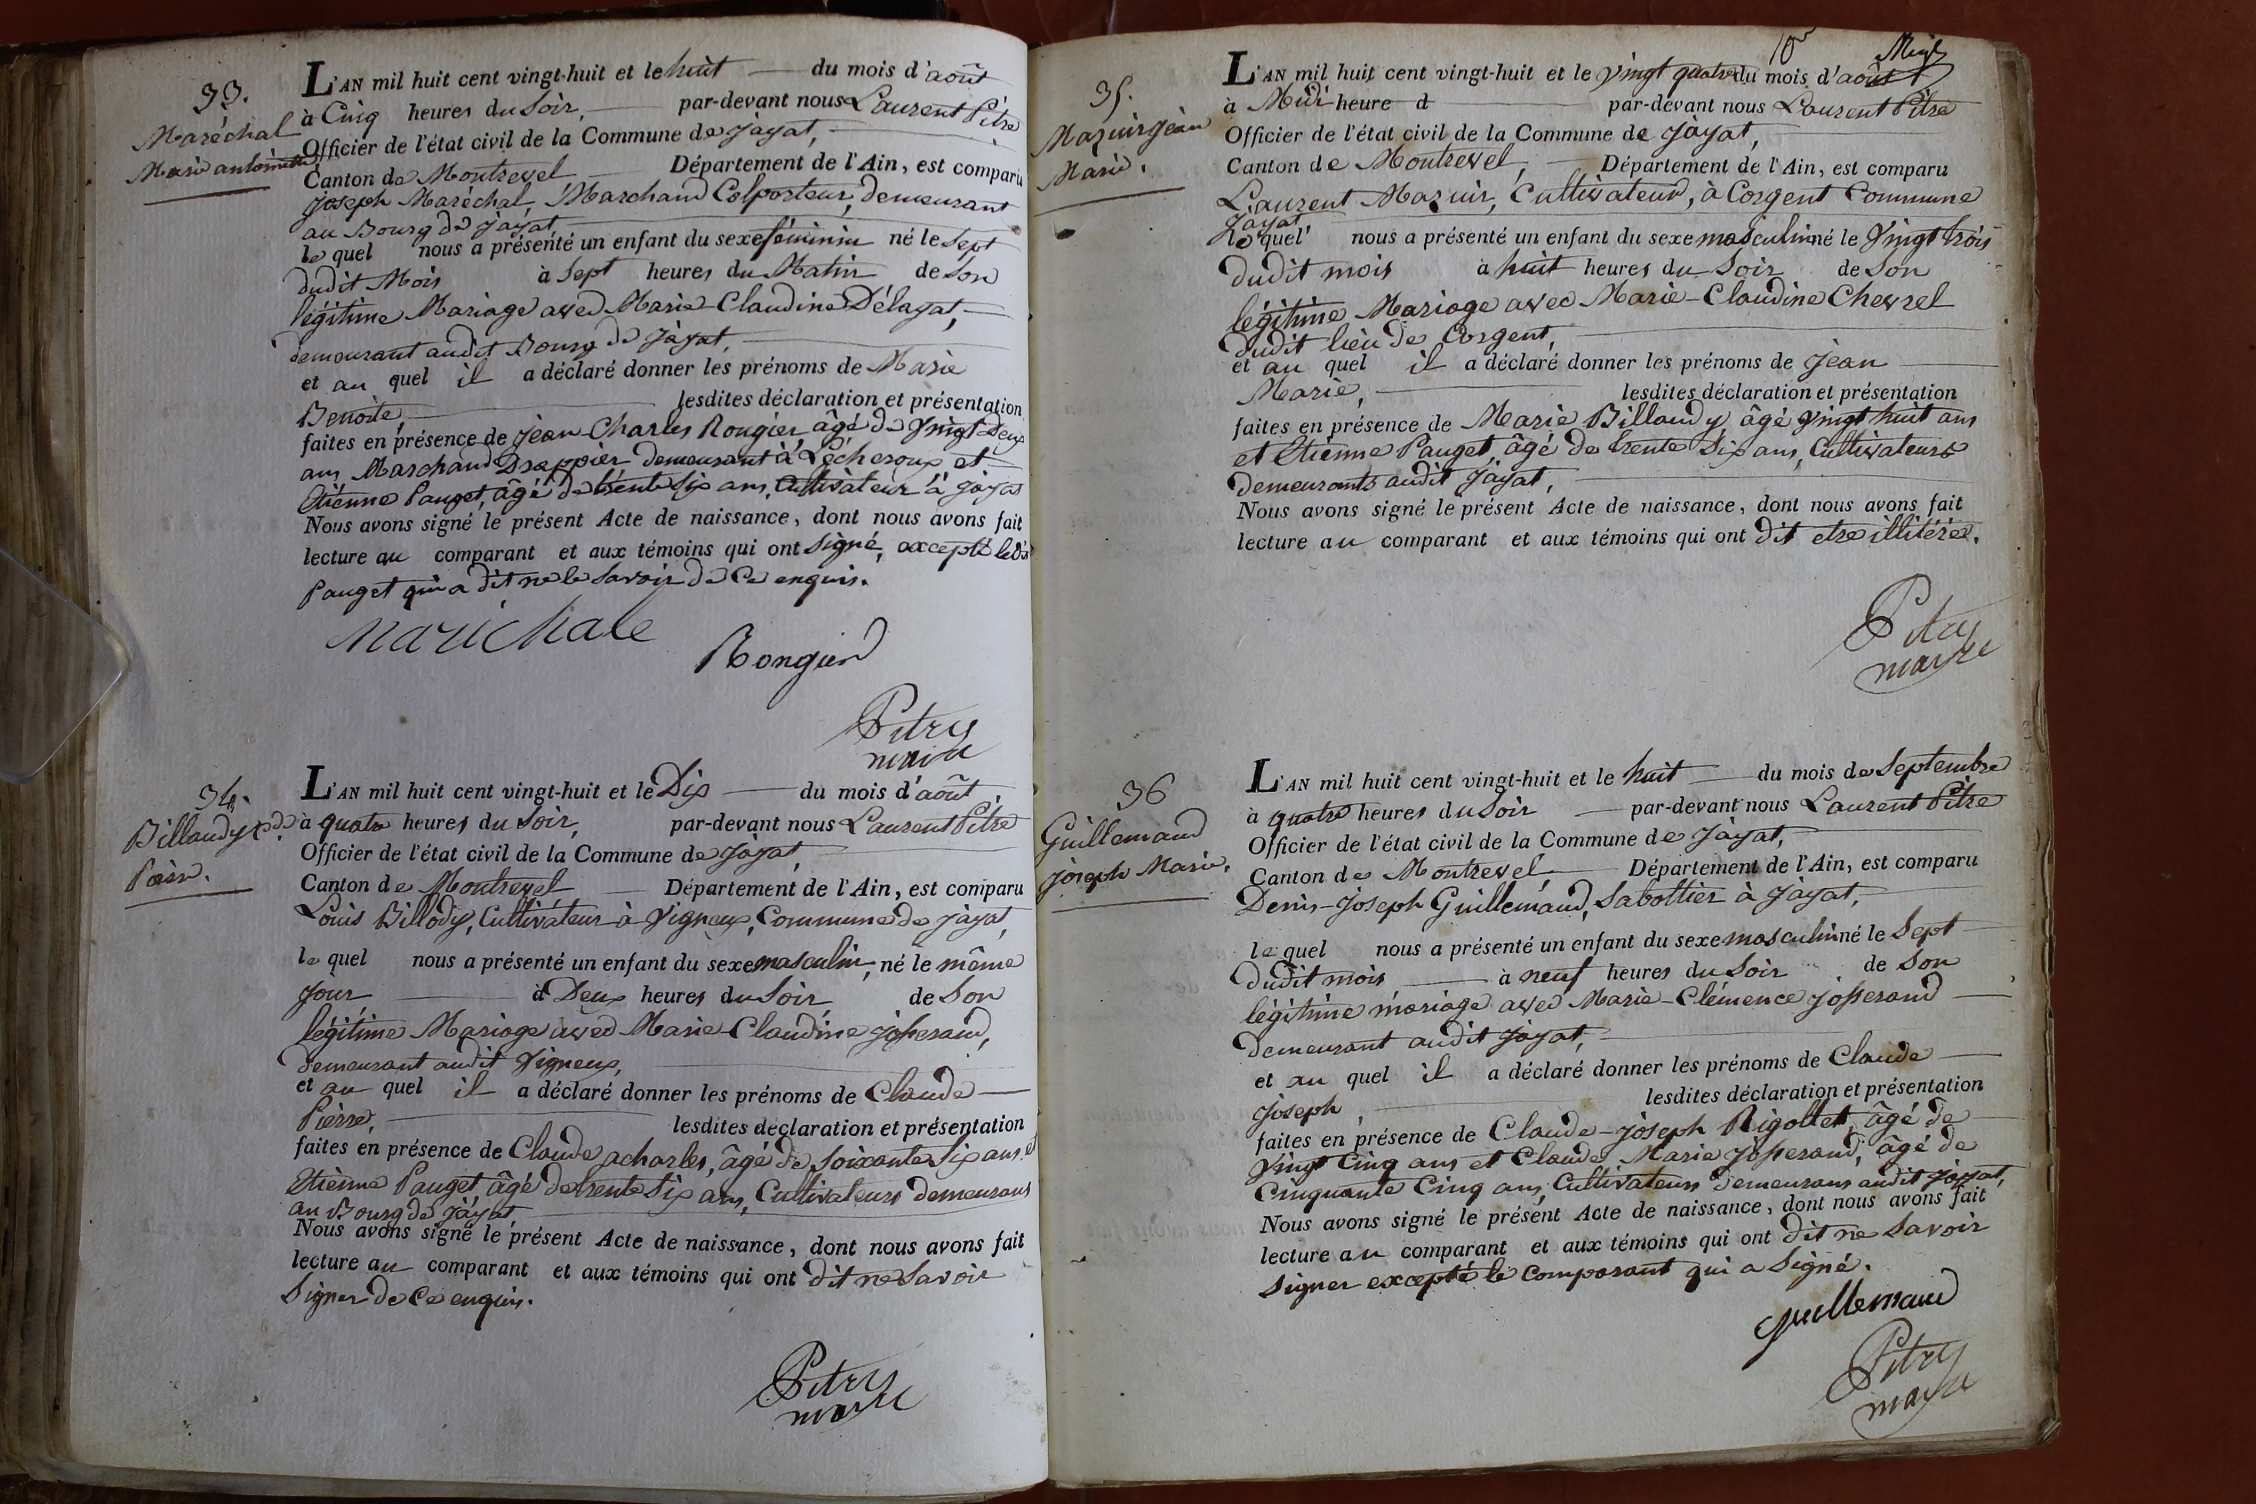 33.
Maréchal
Marie antoinette
L'AN mil huit cent vingt-huit et le huit du mois d'août
à Cinq heures du Soir, par-devant nous Laurent Pitre
Officier de l'état civil de la Commune de Jayat,
Canton de Montrevel Département de l'Ain, est comparu
Joseph Maréchal, Marchand Colporteur, demeurant
au Bourg de Jayat
le quel nous a présenté un enfant du sexe féminin né le Sept
dudit Mois à Sept heures du Matin de Son
légitime Mariage avec Marie-Claudine Délayat,
demeurant audit Bourg de Jayat,
et au quel il a déclaré donner les prénoms de Marie
Benoite, lesdites déclaration et présentation
faites en présence de Jean-Charles Rougier âgé de Vingt Deux
ans, Marchand Drappier demeurant à Lécheroux et
Etiénne Pauget, âgé de trente Six ans, Cultivateur à Jayat
Nous avons signé le présent Acte de naissance, dont nous avons fait
lecture au comparant et aux témoins qui ont Signé, excepté led.
Pauget qui a dit ne le Savoir de Ce enquis.
Marichale
Rougier
Pitre
maire
34.
Billaudy Cde
Pierre.
L'AN mil huit cent vingt-huit et le Dix du mois d'août
à quatre heures du Soir, par-devant nous Laurent Pitre
Officier de l'état civil de la Commune de Jayat,
Canton de Montrevel Département de l'Ain, est comparu
Louis Billody, Cultivateur à Vigneux, Commune de Jayat,
le quel nous a présenté un enfant du sexe masculin, né le même
Jour à Deux heures du Soir, de Son
légitime Mariage avec Marie-Claudine Josserand,
demeurant audit Vigneux,
et au quel il a déclaré donner les prénoms de Claude
Pierre, lesdites déclaration et présentation
faites en présence de Claude acharles, âgé de Soixante Six ans et
Etiénne Pauget, âgé de trente Six ans, Cultivateurs demeurans
au Bourg de Jayat
Nous avons signé le présent Acte de naissance, dont nous avons fait
lecture au comparant et aux témoins qui ont dit ne Savoir
Signer de Ce enquis.
Pitre
maire
35.
Mazuir Jean
Marie.
L'AN mil huit cent vingt-huit et le Vingt quatre du mois d'août
à Midi heure d par-devant nous Laurent Pitre
Officier de l'état civil de la Commune de Jayat,
Canton de Montrevel, Département de l'Ain, est comparu
Laurent Mazuir, Cultivateur, à Corgent Commune
Jayat
le quel nous a présenté un enfant du sexe masculin né le Vingt trois
dudit mois à huit heures du Soir de Son
légitime Mariage avec Marie-Claudine Chevrel
dudit lieu de Corgent,
et au quel il a déclaré donner les prénoms de Jean
Marie, lesdites déclaration et présentation
faites en présence de Marie Billaudy, âgé Vingt huit ans
et Etiénne Pauget, âgé de trente Six ans, Cultivateurs
demeurants audit Jayat,
Nous avons signé le présent Acte de naissance, dont nous avons fait
lecture au comparant et aux témoins qui ont dit etre illitérés.
Pitre
maire
36
Guillemaud
Joseph Marie.
L'AN mil huit cent vingt-huit et le huit du mois de Septembre
à quatre heures du Soir par-devant nous Laurent Pitre
Officier de l'état civil de la Commune de Jayat,
Canton de Montrevel, Département de l'Ain, est comparu
Denis-Joseph Guillemaud, Sabottier à Jayat,
le quel nous a présenté un enfant du sexe masculin né le Sept
dudit mois, à neuf heures du Soir de Son
légitime mariage avec Marie-Clémence Josserand
demeurant audit Jayat,
et au quel il a déclaré donner les prénoms de Claude
Joseph, lesdites déclaration et présentation
faites en présence de Claude-Joseph Rigollet, âgé de
Vingt Cinq ans et Claude Marie Josserand, âgé de
Cinquante Cinq ans, Cultivateurs demeurans audit Jayat,
Nous avons signé le présent Acte de naissance, dont nous avons fait
lecture au comparant et aux témoins qui ont dit ne Savoir
Signer excepté le comparant qui a Signé.
Guillemaud
Pitre
maire